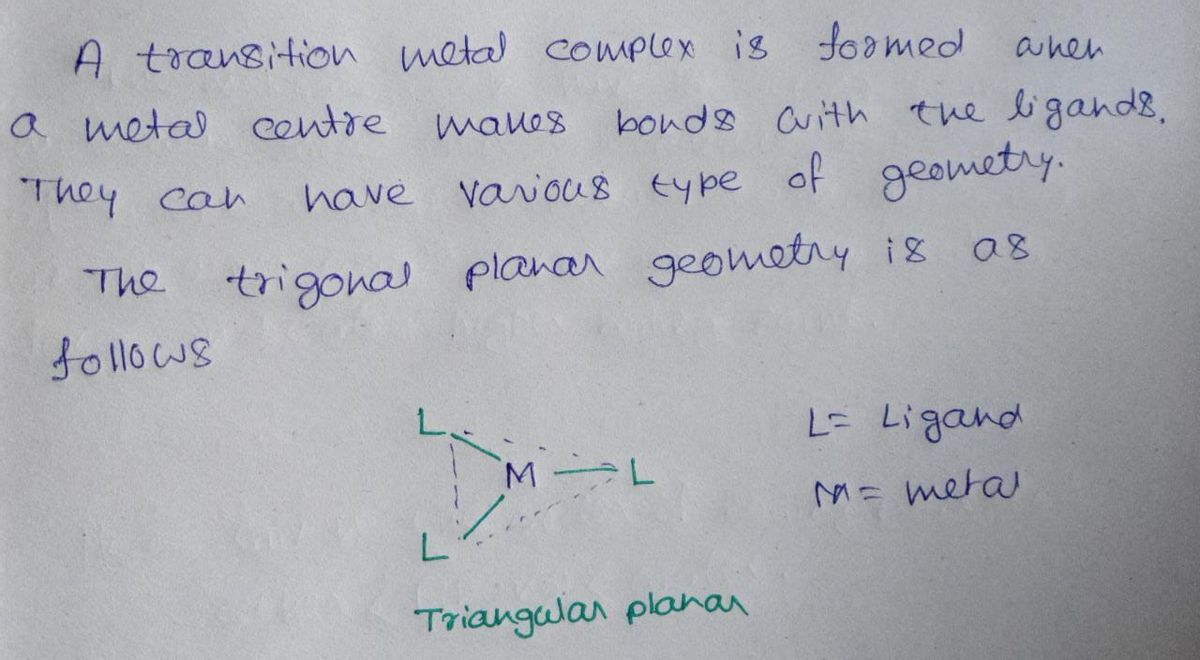 A transition metal complex is formed when
a metal centre makes bonds with the ligands.
They can have various type of geometry.
The trigonal planar geometry is as
follows
L
M L
L
L = Ligand
M = metal
Triangular planar